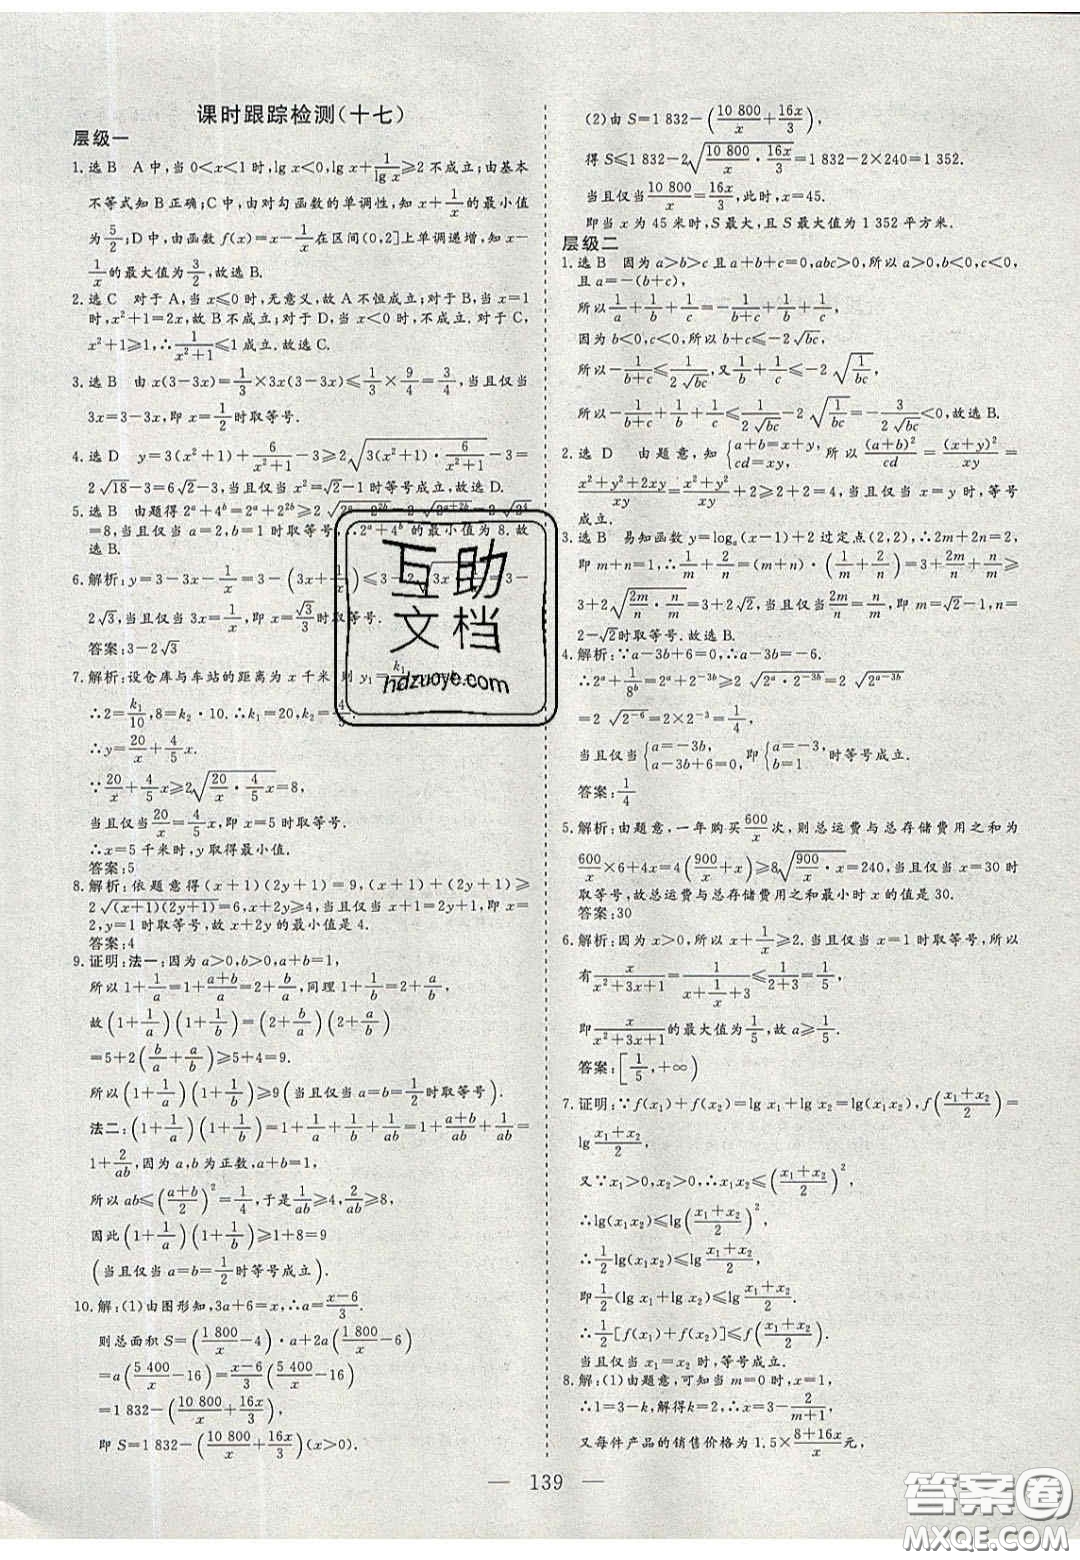 课时跟踪检测(十七)
层级一
1.选B A中,当0<x<1时,lg x<0,lg x+1/lg x≥2不成立;由基本
不等式知B正确;C中,由对勾函数的单调性,知x+1/x的最小值
为5/2;D中,由函数f(x)=x-1/x在区间(0,2]上单调递增,知x-
1/x的最大值为3/2,故选B.
2.选C 对于A,当x≤0时,无意义,故A不恒成立;对于B,当x=1
时,x²+1=2x,故B不成立;对于D,当x=0时,不成立.对于C,
x²+1≥1,∴1/(x²+1)≤1成立.故选C.
3.选B 由x(3-3x)=1/3×3x(3-3x)≤1/3×9/4=3/4,当且仅当
3x=3-3x,即x=1/2时取等号.
4.选D y=3(x²+1)+6/(x²+1)-3≥2√(3(x²+1)·6/(x²+1))-3=
2√18-3=6√2-3,当且仅当x²=√2-1时等号成立,故选D.
5.选B 由题得2^a+4^b=2^a+2^(2b)≥2√(2^a·2^(2b))=2√(2^(a+2b))=2√(2^4)
=8,当且仅当a=2,b=1时取等号,∴2^a+4^b的最小值为8.故
选B.
6.解析:y=3-3x-1/x=3-(3x+1/x)≤3-2√(3x·1/x)=3-
2√3,当且仅当3x=1/x,即x=√3/3时取等号.
答案:3-2√3
7.解析:设仓库与车站的距离为x千米,则y₁=k₁/x
∴2=k₁/10,8=k₂·10.∴k₁=20,k₂=4/5.
∴y=20/x+4/5 x.
∵20/x+4/5 x≥2√(20/x·4/5 x)=8,
当且仅当20/x=4/5 x,即x=5时取等号.
∴x=5千米时,y取得最小值.
答案:5
8.解析:依题意得(x+1)(2y+1)=9,(x+1)+(2y+1)≥
2√((x+1)(2y+1))=6,x+2y≥4,当且仅当x+1=2y+1,即x=
2,y=1时取等号.故x+2y的最小值是4.
答案:4
9.证明:法一:因为a>0,b>0,a+b=1,
所以1+1/a=1+(a+b)/a=2+b/a,同理1+1/b=2+a/b,
故(1+1/a)(1+1/b)=(2+b/a)(2+a/b)
=5+2(b/a+a/b)≥5+4=9.
所以(1+1/a)(1+1/b)≥9(当且仅当a=b=1/2时取等号).
法二:(1+1/a)(1+1/b)=1+1/a+1/b+1/ab=1+(a+b)/ab+1/ab=
1+2/ab,因为a,b为正数,a+b=1,
所以ab≤((a+b)/2)²=1/4,于是1/ab≥4,2/ab≥8,
因此(1+1/a)(1+1/b)≥1+8=9
(当且仅当a=b=1/2时等号成立).
10.解:(1)由图形知,3a+6=x,∴a=(x-6)/3.
则总面积S=(1 800/x-4)·a+2a(1 800/x-6)
=a(5 400/x-16)=(x-6)/3(5 400/x-16)
=1 832-(10 800/x+16x/3),
即S=1 832-(10 800/x+16x/3)(x>0).
(2)由S=1 832-(10 800/x+16x/3),
得S≤1 832-2√(10 800/x·16x/3)=1 832-2×240=1 352.
当且仅当10 800/x=16x/3,此时,x=45.
即当x为45米时,S最大,且S最大值为1 352平方米.
层级二
1.选B 因为a>b>c且a+b+c=0,abc>0,所以a>0,b<0,c<0,
且a=-(b+c),
所以1/a+1/b+1/c=-1/(b+c)+1/b+1/c,
因为b<0,c<0,所以b+c≤-2√bc,
所以-1/(b+c)≤1/(2√bc),又1/b+1/c≤-2√(1/bc),
所以-1/(b+c)+1/b+1/c≤1/(2√bc)-2√(1/bc)=-3/(2√bc)<0,故选B.
2.选D 由题意,知{a+b=x+y,cd=xy,所以(a+b)²/cd=(x+y)²/xy=
(x²+y²+2xy)/xy=(x²+y²)/xy+2≥2+2=4,当且仅当x=y时,等号
成立.
3.选B 易知函数y=logₐ(x-1)+2过定点(2,2),∴2m+2n=2,
即m+n=1,∴1/m+2/n=(m+n)·(1/m+2/n)=3+2m/n+n/m≥
3+2√(2m/n·n/m)=3+2√2,当且仅当2m/n=n/m,即m=√2-1,n=
2-√2时取等号.故选B.
4.解析:∵a-3b+6=0,∴a-3b=-6.
∴2^a+1/8^b=2^a+2^(-3b)≥2√(2^a·2^(-3b))=2√(2^(a-3b))
=2√(2^(-6))=2×2^(-3)=1/4,
当且仅当{a=-3b,a-3b+6=0,即{a=-3,b=1时等号成立.
答案:1/4
5.解析:由题意,一年购买600/x次,则总运费与总存储费用之和为
600/x×6+4x=4(900/x+x)≥8√(900/x·x)=240,当且仅当x=30时
取等号,故总运费与总存储费用之和最小时x的值是30.
答案:30
6.解析:因为x>0,所以x+1/x≥2.当且仅当x=1时取等号,所以
有x/(x²+3x+1)=1/(x+1/x+3)≤1/(2+3)=1/5,
即x/(x²+3x+1)的最大值为1/5,故a≥1/5.
答案:[1/5,+∞)
7.证明:∵f(x₁)+f(x₂)=lg x₁+lg x₂=lg(x₁x₂),f((x₁+x₂)/2)=
lg (x₁+x₂)/2,
又∵x₁>0,x₂>0,∴x₁x₂≤((x₁+x₂)/2)²,
∴lg(x₁x₂)≤lg((x₁+x₂)/2)²,
∴1/2 lg(x₁x₂)≤lg (x₁+x₂)/2,
即1/2(lg x₁+lg x₂)≤lg (x₁+x₂)/2.
∴1/2[f(x₁)+f(x₂)]≤f((x₁+x₂)/2).
当且仅当x₁=x₂时,等号成立.
8.解:(1)由题意,可知当m=0时,x=1,
∴1=3-k,解得k=2,∴x=3-2/(m+1),
又每件产品的销售价格为1.5×(8+16x)/x元,
— 139 —
互助
文档
hdzuoye.com
答案圈
MXQE.COM